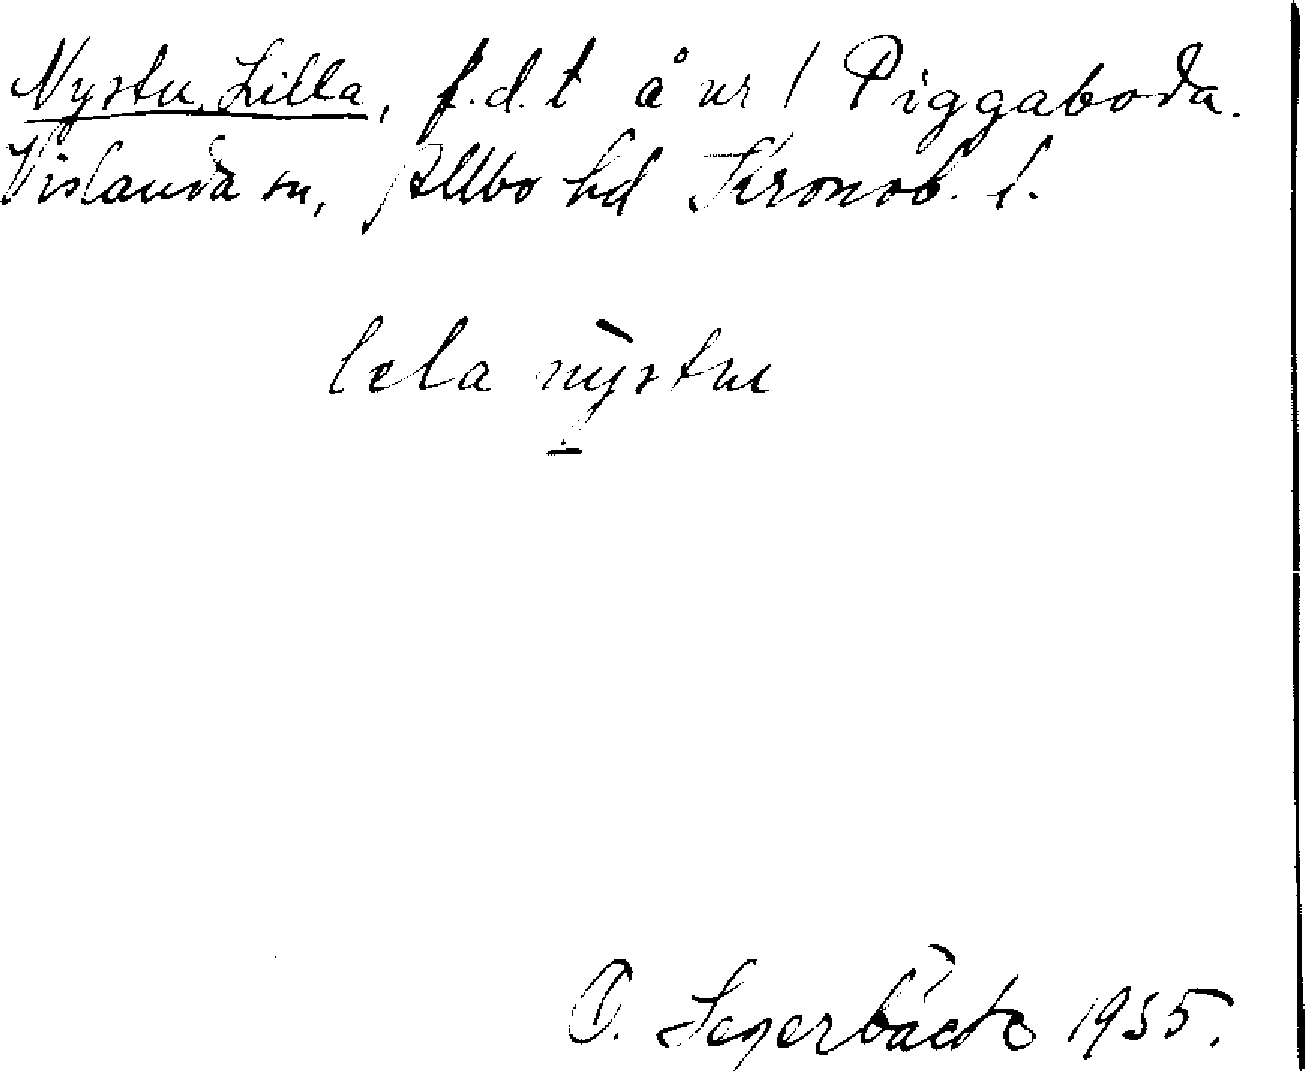 Nystu, Lilla, f.d. t å nr 1 Piggaboda.
Vislanda sn, Allbo hd Kronob. l.
lela nỳstu
O. Segerbäck 1955.